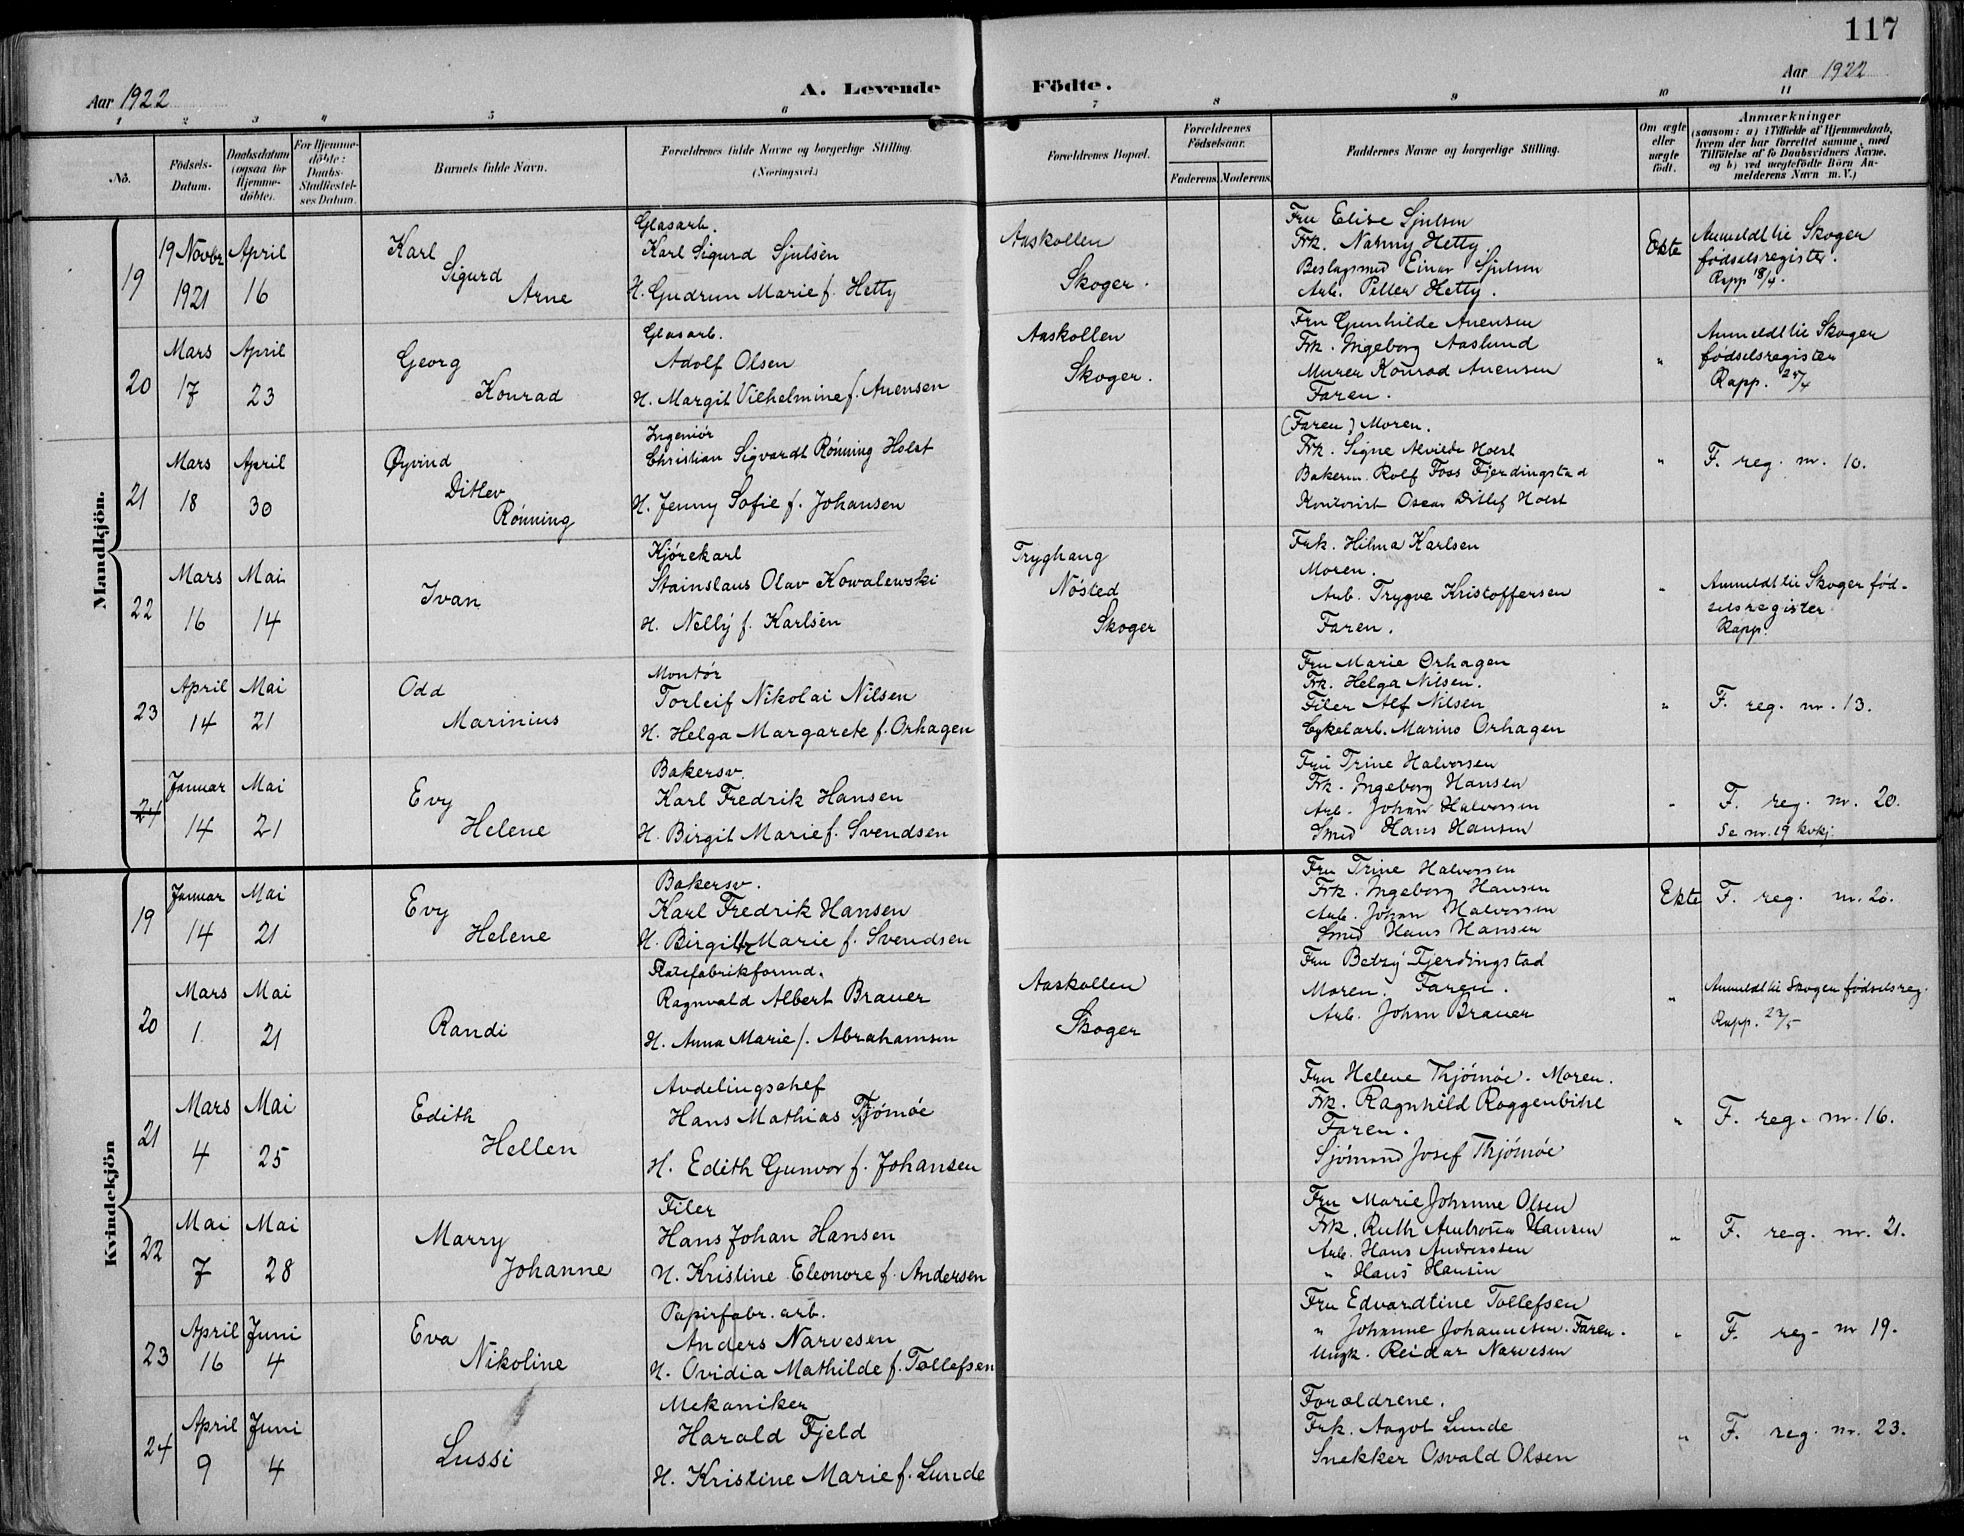 117
Aar 1922
A. Levende
Födte.
Aar 1922
1 2 3 4 5 6 7 8 9 10 11
No.
Födsels-
Datum.
Daabsdatum
(ogsaa for
Hjemme-
döbte).
For Hjemme-
döbte:
Daabs-
Stadfæstel-
ses Datum.
Barnets fulde Navn.
Forældrenes fulde Navne og borgerlige Stilling.
(Næringsvei.)
Forældrenes Bopæl.
Forældrenes
Födselsaar.
Faderens. Moderens.
Faddernes Navne og borgerlige Stilling.
Om ægte
eller
uægte
födt.
Anmærkninger
(saasom: a) i Tilfælde af Hjemmedaab,
hvem der har forrettet samme, med
Tilföielse af to Daabsvidners Navne,
og b) ved uægtefödte Börn An-
melderens Navn m. V.)
Mandkjön.
19
19 Novbr
1921
April
16
Karl
Sigurd
Arne
Glasarb.
Karl Sigurd Sjulsen
H. Gudrun Marie f. Hetty
Aaskollen
Skoger.
Fru Elise Sjulsen
Frk. Nanny Hetty.
Beslagsmed Einar Sjulsen
Arb. Petter Hetty.
Ekte
Anmeldt til Skoger
fødselsregister.
Rapp 18/4.
20
Mars
17
April
23
Georg
Konrad
Glasarb.
Adolf Olsen
H. Margit Vilhelmine f. Anensen
Aaskollen
Skoger.
Fru Gunhilde Anensen
Frk. Ingeborg Aaslund
Murer Konrad Anensen
Faren.
"
Anmeldt til Skoger
fødselsregister
Rapp. 25/4
21
Mars
18
April
30
Øyvind
Ditlev
Rönning
Ingeniör
Christian Sigvardt Rönning Holst
H. Jenny Sofie f. Johansen
(Faren) Moren.
Frk. Signe Alvilde Holst
Bakerm. Rolf Foss Fjerdingstad
Kontorist Oscar Ditlef Holst
"
F. reg. nr. 10.
22
Mars
16
Mai
14
Ivan
Kjörekarl
Stainslaus Olav Kowalewski
H. Nelly f. Karlsen
Tryghaug
Nösted
Skoger
Frk. Hilma Karlsen
Moren.
Arb. Trygve Kristoffersen
Faren.
"
Anmeldt til Skoger fød-
selsregister
Rapp.
23
April
14
Mai
21
Odd
Marinius
Montör
Torleif Nikolai Nilsen
H. Helga Margarete f. Orhagen
Fru Marie Orhagen
Frk. Helga Nilsen.
Filer Alf Nilsen
Cykelarb. Marius Orhagen
"
F. reg. nr. 13.
24
Januar
14
Mai
21
Evy
Helene
Bakersv.
Karl Fredrik Hansen
H. Birgit Marie f. Svendsen
Fru Trine Halvorsen
Frk. Ingeborg Hansen
Arb. Johan Halvorsen
Smed Hans Hansen
"
F. reg. nr. 20.
Se nr. 19 kvkj.
Kvindekjön
19
Januar
14
Mai
21
Evy
Helene
Bakersv.
Karl Fredrik Hansen
H. Birgit Marie f. Svendsen
Fru Trine Halvorsen
Frk. Ingeborg Hansen
Arb. Johan Halvorsen
Smed Hans Hansen
Ekte
F. reg. nr. 20.
20
Mars
1
Mai
21
Randi
Ragnvald Albert Brauer
H. Anna Marie f. Abrahamsen
Aaskollen
Skoger
Fru Betzy Fjerdingstad
Moren. Faren.
Arb. Johan Brauer
"
Anmeldt til Skoger fødselsreg.
Rapp. 23/5
21
Mars
4
Mai
25
Edith
Hellen
Avdelingschef
Hans Mathias Tjömöe
H. Edith Gunvor f. Johansen
Fru Helene Thjömöe. Moren.
Frk. Ragnhild Roggenbihe
Faren.
Sjömand Josef Thjömöe
"
F. reg. nr. 16.
22
Mai
7
Mai
28
Marry
Johanne
Filer
Hans Johan Hansen
H. Kristine Eleonore f. Andersen
Fru Marie Johanne Olsen
Frk. Ruth Hansen
Arb. Hans Andreassen
" Hans Hansen
"
F. reg. nr. 21.
23
April
16
Juni
4
Eva
Nikoline
Papirfabr. arb.
Anders Narvesen
H. Ovidia Mathilde f. Tollefsen
Fru Edvardtine Tollefsen
" Johanne Johannesen. Faren.
Ungk. Reidar Narvesen
"
F. reg. nr 19.
24
April
9
Juni
4
Lussi
Mekaniker
Harald Fjeld
H. Kristine Marie f. Lunde
Forældrene.
Frk. Aagot Lunde
Snekker Osvald Olsen
"
F. reg. nr. 23.